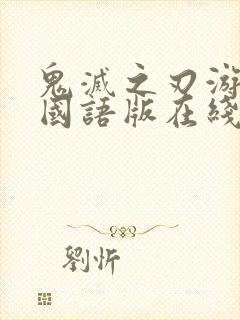 鬼滅之刃游
國語版在綫
劉忻